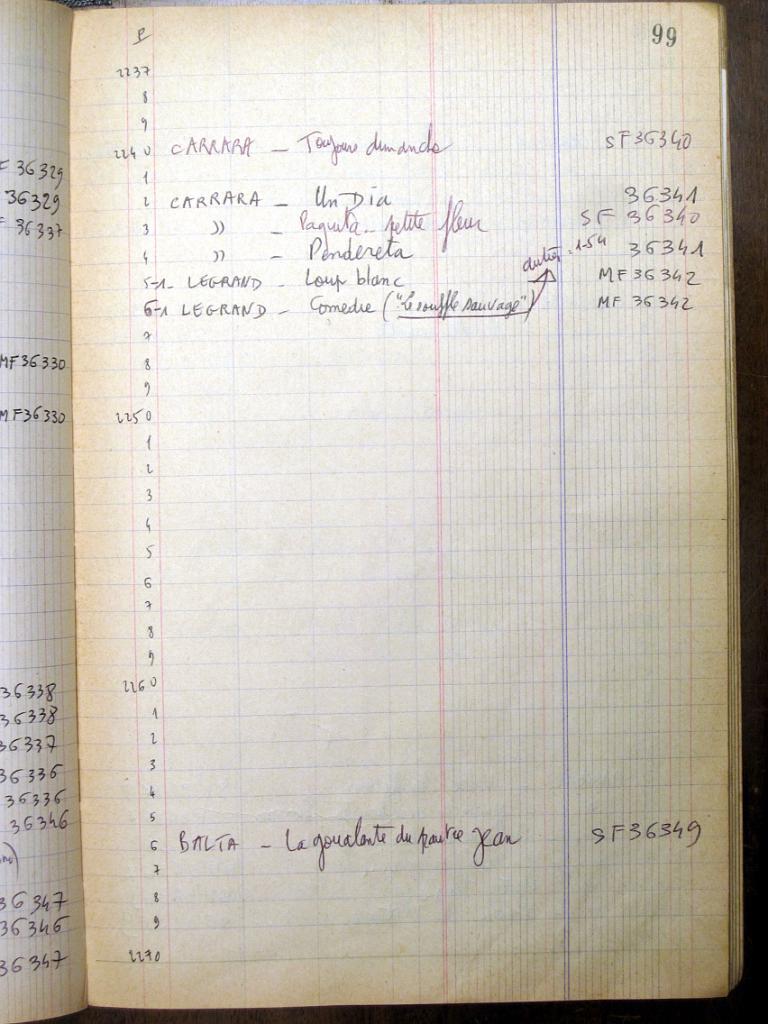 99
P
2237
8
9
2240 CARRARA - Toujours dimanche SF36340
1
2 CARRARA - Un Dia 36341
3 " - Paquita - petite fleur SF 36340
4 " - Pandereta 36341
5-1 LEGRAND - Loup blanc MF36342
1-54
6-1 LEGRAND - Comedie ("le souffle sauvage") MF 36342
7
8
9
2250
1
2
3
4
5
6
7
8
9
2260
1
2
3
4
5
6 BALTA - La goualante du pauvre Jean SF36349
7
8
9
2270
36329
36329
36337
MF36330
MF36330
36338
36338
36337
36336
36336
36346
36347
36346
36347